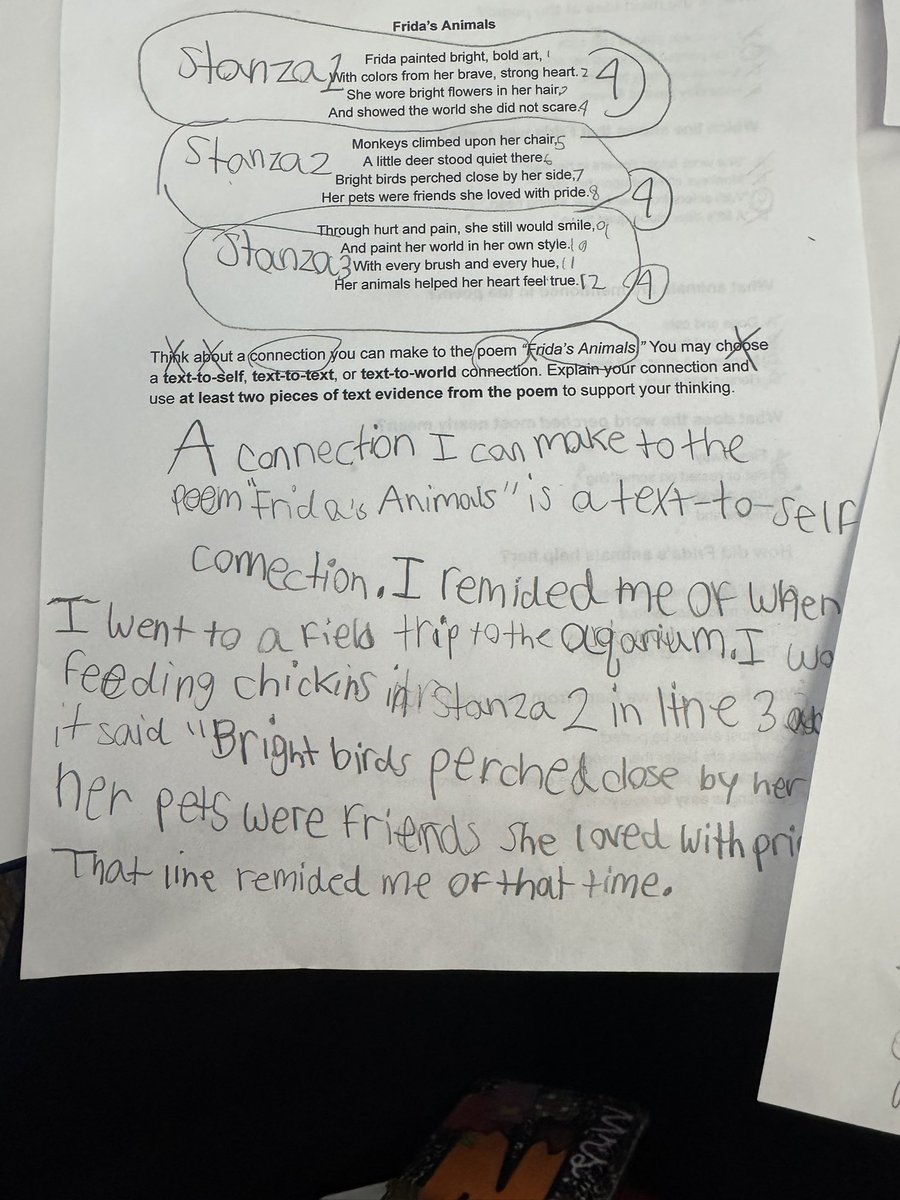 Frida's Animals
Stanza 1
Frida painted bright, bold art, 1
With colors from her brave, strong heart. 2
She wore bright flowers in her hair,
And showed the world she did not scare. 4
4
Stanza 2
Monkeys climbed upon her chair, 5
A little deer stood quiet there. 6
Bright birds perched close by her side, 7
Her pets were friends she loved with pride. 8
4
Stanza 3
Through hurt and pain, she still would smile, 9
And paint her world in her own style. 10
With every brush and every hue, 11
Her animals helped her heart feel true. 12
4
Think about a connection you can make to the poem “Frida's Animals.” You may choose
a text-to-self, text-to-text, or text-to-world connection. Explain your connection and
use at least two pieces of text evidence from the poem to support your thinking.
A connection I can make to the
poem "Frida's Animals" is a text-to-self
connection. I remided me of when
I went to a field trip to the aqarium. I
feeding chickins in Stanza 2 in line 3
it said "Bright birds perched close by her
her pets were friends she loved with
That line remided me of that time.